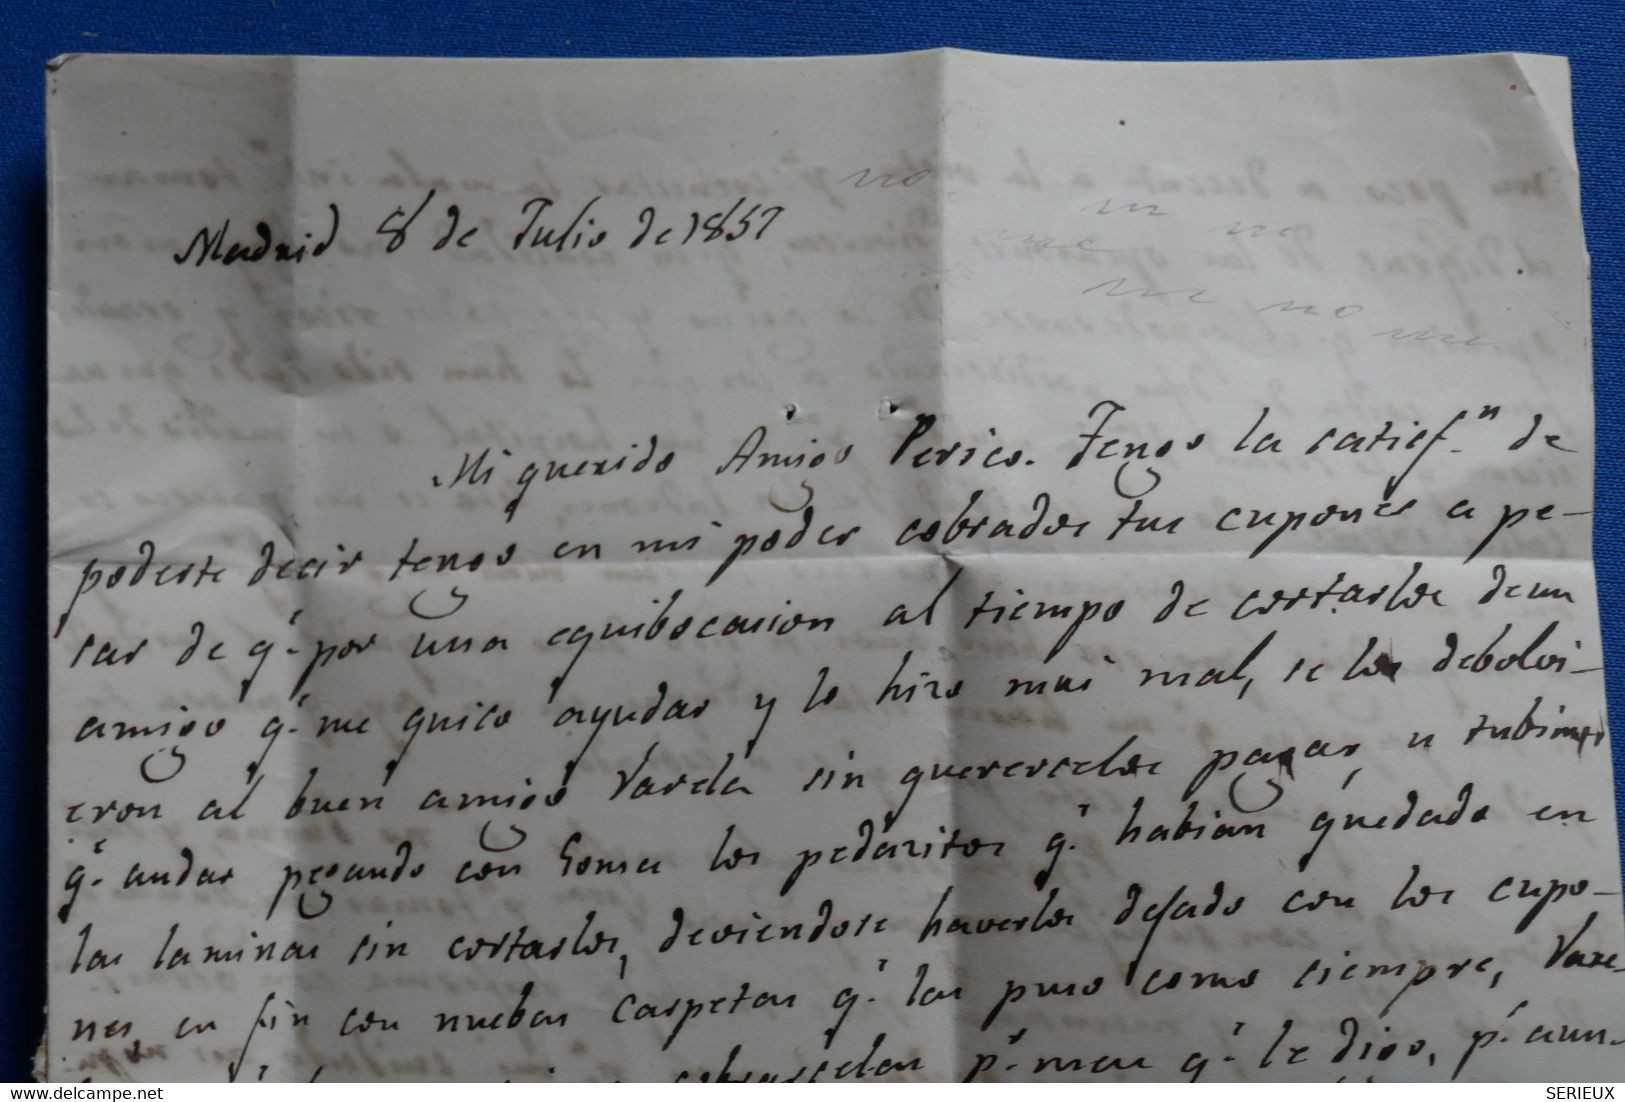 Madrid 8 de Julio de 1857
Mi querido Amigo Perico. Tengo la satisf.n de
poderte decir tengo en mi poder cobrados tus cupones a pe-
sar de q.e por una equibocasion al tiempo de cortarlos de un
amigo q.e me quiso ayudar y lo hizo mui mal, se los debolvi-
eron al buen amigo Varela sin quererselos pagar, y tubimos
q.e andar pegando con Goma los pedazitos q.e habian quedado en
las laminas sin cortarlos, deviendose haverlos dejado con los cupo-
nes, en fin con nuebas carpetas q.e las puso como siempre, Vare-
cobrarselas p.r mas q.e le digo, p.r aun-
SERIEUX